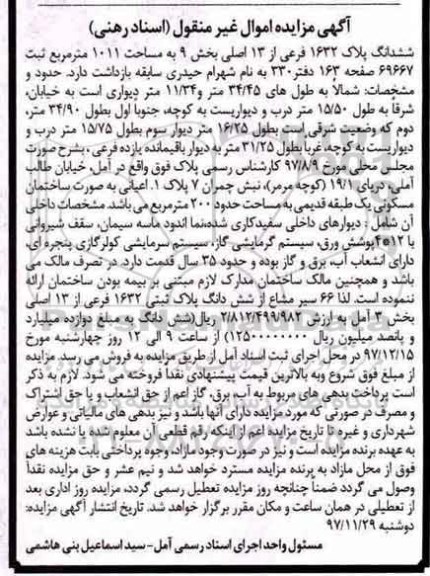 آگهی مزایده اموال غیر منقول (اسناد رهنی)
ششدانگ پلاک ۱۶۳۲ فرعی از ۱۳ اصلی بخش ۹ به مساحت ۱۰۱۱ مترمربع ثبت
۶۹۶۶۷ صفحه ۱۶۳ دفتر ۳۳۰ به نام شهرام حیدری سابقه بازداشت دارد. حدود و
مشخصات: شمالاً به طول های ۳۴/۴۵ متر و ۱۱/۳۴ متر دیواری است به خیابان،
شرقاً به طول ۱۵/۵۰ متر درب و دیواریست به کوچه، جنوبا اول بطول ۳۴/۹۰ متر،
دوم که وضعیت شرقی است بطول ۱۶/۲۵ متر دیوار سوم بطول ۱۵/۷۵ متر درب و
دیواریست به کوچه، غربا بطول ۳۱/۲۵ متر به دیوار باقیمانده یازده فرعی، بشرح صورت
مجلس محلی مورخ ۹۷/۸/۹ کارشناس رسمی پلاک فوق واقع در آمل، خیابان طالب
آملی، دریای ۱۹/۱ (کوچه مرمر)، نبش چمران ۷ پلاک ۱. اعیانی به صورت ساختمان
مسکونی یک طبقه قدیمی به مساحت حدود ۲۰۰ مترمربع می باشد. مشخصات داخلی
آن شامل: دیوارهای داخلی سفیدکاری شده، نما اندود ماسه سیمان، سقف شیروانی
با پوشش ورق، سیستم گرمایشی گاز، سیستم سرمایشی کولرگازی پنجره ای،
دارای انشعاب آب، برق و گاز بوده و حدود ۳۵ سال قدمت دارد. در تصرف مالک می
باشد و همچنین مالک ساختمان مدارک لازم مبتنی بر بیمه بودن ساختمان ارائه
ننموده است. لذا ۶۶ سیر مشاع از شش دانگ پلاک ثبتی ۱۶۳۲ فرعی از ۱۳ اصلی
بخش ۳ آمل به ارزش ۲/۸۱۲/۴۹۹/۹۸۲ ریال (شش دانگ به مبلغ دوازده میلیارد
و پانصد میلیون ریال ۱۲۵۰۰۰۰۰۰۰۰) از ساعت ۹ الی ۱۲ روز چهارشنبه مورخ
۹۷/۱۲/۱۵ در محل اجرای ثبت اسناد آمل از طریق مزایده به فروش می رسد. مزایده
از مبلغ فوق شروع وبه بالاترین قیمت پیشنهادی نقدا فروخته می شود. لازم به ذکر
است پرداخت بدهی های مربوط به آب، برق، گاز اعم از حق انشعاب و یا حق اشتراک
و مصرف در صورتی که مورد مزایده دارای آنها باشد و نیز بدهی های مالیاتی و عوارض
شهرداری و غیره تا تاریخ مزایده اعم از اینکه رقم قطعی آن معلوم شده یا نشده باشد
به عهده برنده مزایده است و نیز در صورت وجود مازاد، وجوه پرداختی بابت هزینه های
فوق از محل مازاد به برنده مزایده مسترد خواهد شد و نیم عشر و حق مزایده نقداً
وصول می گردد ضمناً چنانچه روز مزایده تعطیل رسمی گردد، مزایده روز اداری بعد
از تعطیلی در همان ساعت و مکان مقرر برگزار خواهد شد. تاریخ انتشار آگهی مزایده:
دوشنبه ۹۷/۱۱/۲۹
مسئول واحد اجرای اسناد رسمی آمل - سید اسماعیل بنی هاشمی